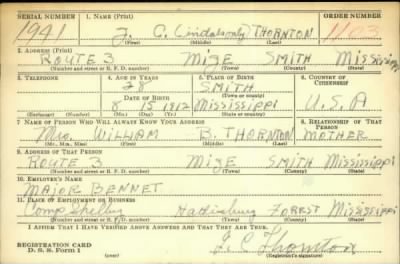 SERIAL NUMBER 1. NAME (Print) ORDER NUMBER
1941 J. C. (only) THORNTON
(First) (Middle) (Last)
2. ADDRESS (Print)
ROUTE 3 MIZE SMITH Mississippi
(Number and street or R. F. D. number) (Town) (County) (State)
3. TELEPHONE 4. AGE IN YEARS 5. PLACE OF BIRTH 6. COUNTRY OF CITIZENSHIP
28 SMITH
(Town or county)
DATE OF BIRTH
8 15 1912 Mississippi U.S.A
(Exchange) (Number) (Mo.) (Day) (Yr.) (State or country)
7. NAME OF PERSON WHO WILL ALWAYS KNOW YOUR ADDRESS 8. RELATIONSHIP OF THAT PERSON
Mrs. WILLIAM B. THORNTON MOTHER
(Mr., Mrs., Miss) (First) (Middle) (Last)
9. ADDRESS OF THAT PERSON
ROUTE 3 MIZE SMITH Mississippi
(Number and street or R. F. D. number) (Town) (County) (State)
10. EMPLOYER'S NAME
MAJOR BENNET
11. PLACE OF EMPLOYMENT OR BUSINESS
Camp Shelby Hattiesburg FORREST Mississippi
(Number and street or R. F. D. number) (Town) (County) (State)
I AFFIRM THAT I HAVE VERIFIED ABOVE ANSWERS AND THAT THEY ARE TRUE.
REGISTRATION CARD
D. S. S. Form 1 J. C. Thornton
(Registrant's signature)